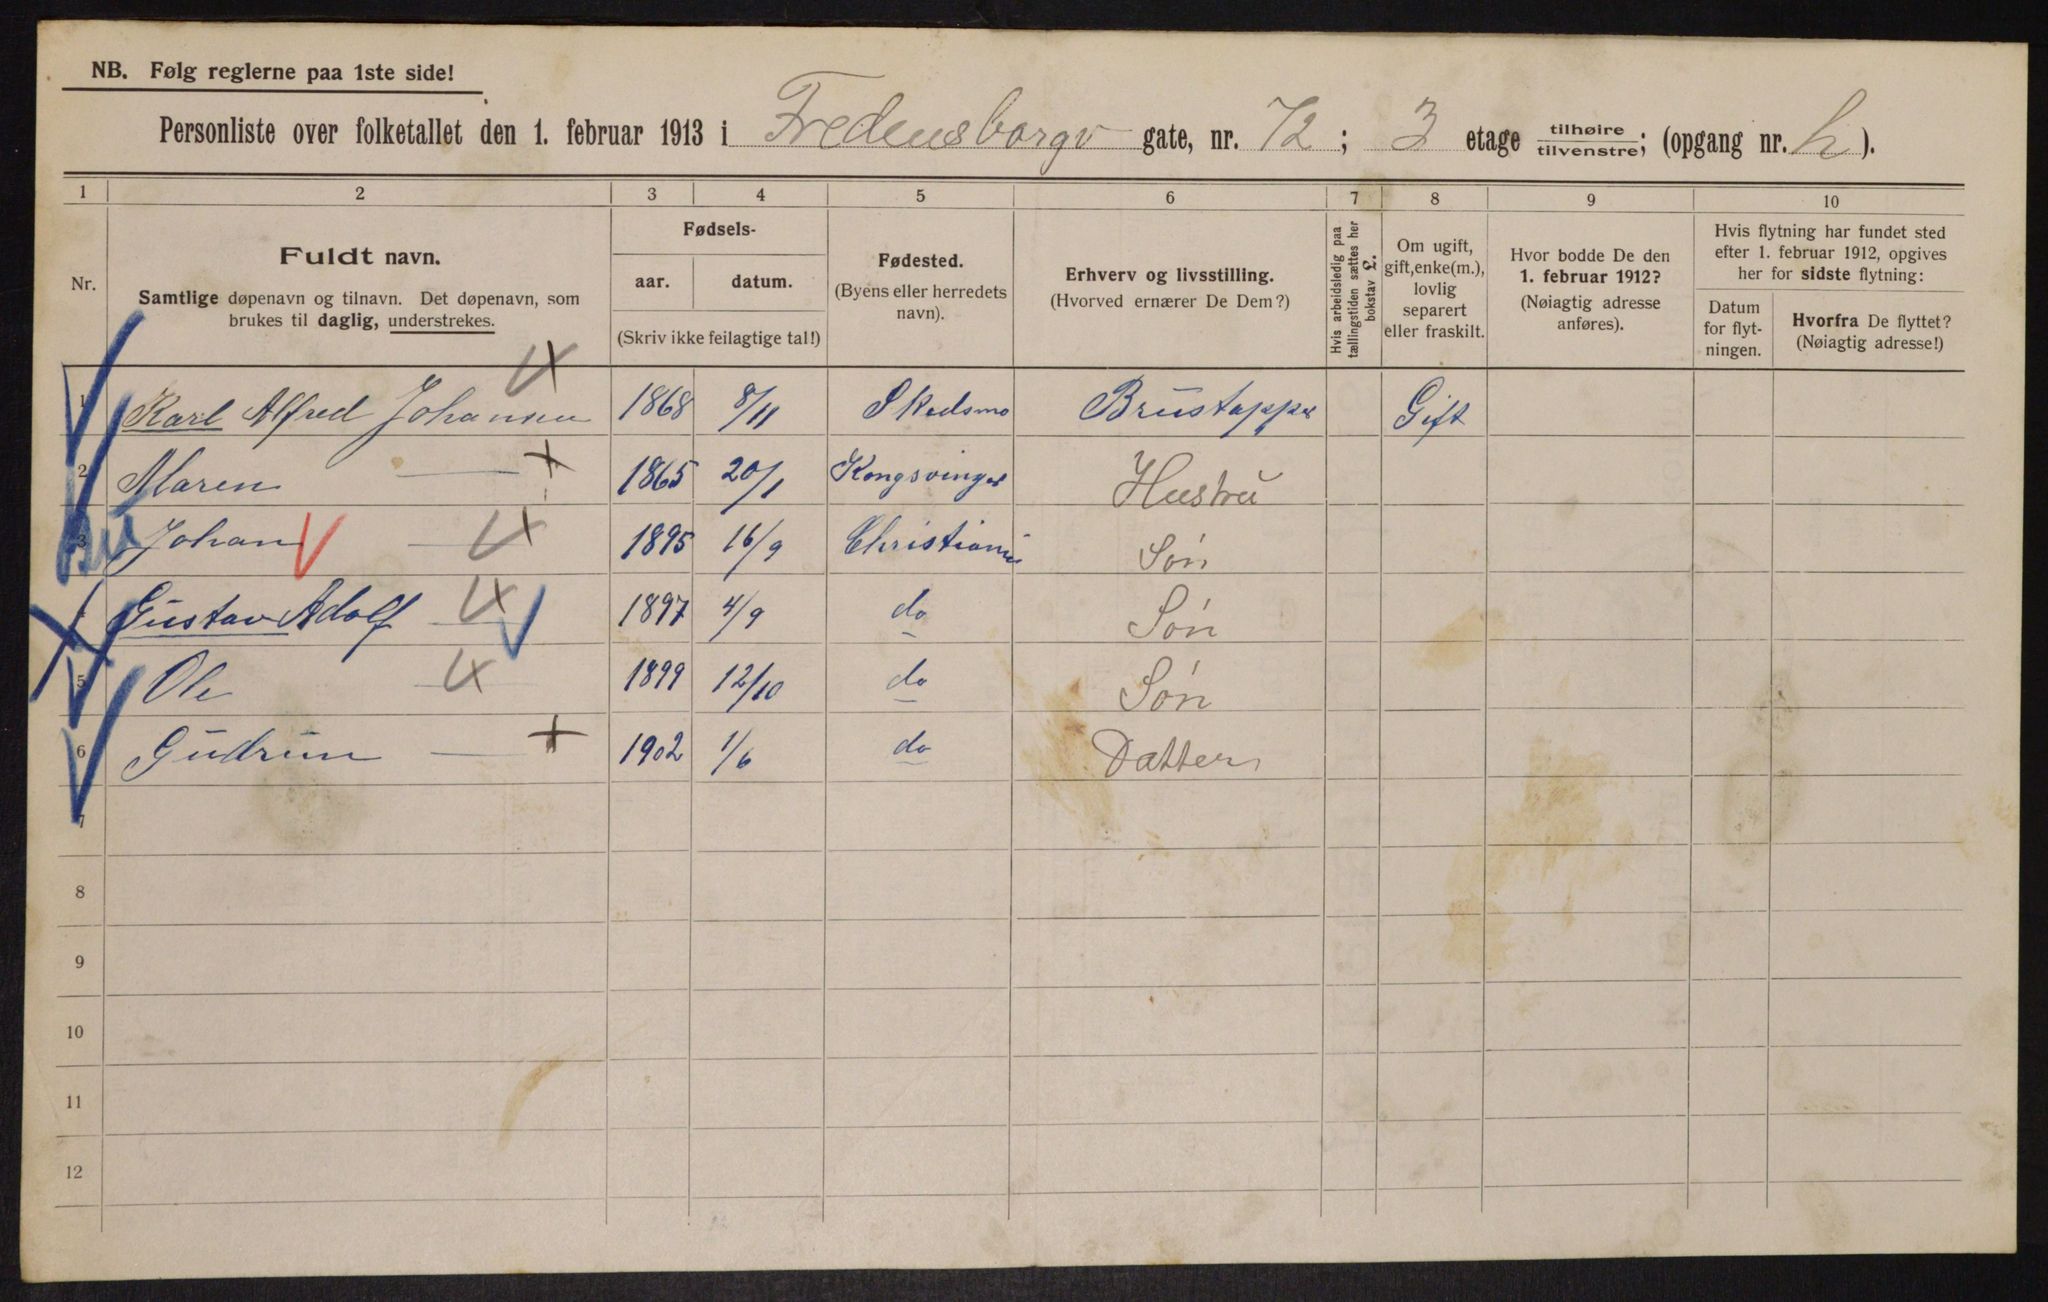 NB. Følg reglerne paa 1ste side!
Personliste over folketallet den 1. februar 1913 i Fredensborgv gate, nr. 72; 3 etage tilhøire / tilvenstre; (opgang nr. h).
1 2 3 4 5 6 7 8 9 10
Nr.
Fuldt navn.
Samtlige døpenavn og tilnavn. Det døpenavn, som
brukes til daglig, understrekes.
Fødsels-
aar. datum.
(Skriv ikke feilagtige tal!)
Fødested.
(Byens eller herredets
navn).
Erhverv og livsstilling.
(Hvorved ernærer De Dem?)
Hvis arbeidsledig paa
tællingstiden sættes her
bokstav £.
Om ugift,
gift, enke(m.),
lovlig
separert
eller fraskilt.
Hvor bodde De den
1. februar 1912?
(Nøiagtig adresse
anføres).
Hvis flytning har fundet sted
efter 1. februar 1912, opgives
her for sidste flytning:
Datum
for flyt-
ningen.
Hvorfra De flyttet?
(Nøiagtig adresse!)
1 Karl Alfred Johansen 1868 8/11 Skedsmo Brustapper Gift
2 Maren — 1865 20/1 Kongsvinger Hustru
3 Johan — 1895 16/9 Christiania Søn
Gustav Adolf — 1897 4/9 do Søn
5 Ole — 1899 12/10 do Søn
6 Gudrun — 1902 1/6 do Datter
7
8
9
10
11
12